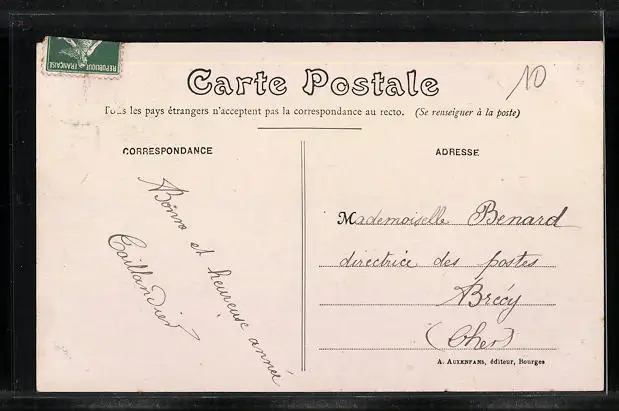 RÉPUBLIQUE FRANÇAISE
10
Carte Postale
Tous les pays étrangers n'acceptent pas la correspondance au recto. (Se renseigner à la poste)
CORRESPONDANCE
Bonne et heureuse année
Taillandier
ADRESSE
Mademoiselle Benard
directrice des postes
Brécy
(Cher)
A. AUXENFANS, éditeur, Bourges